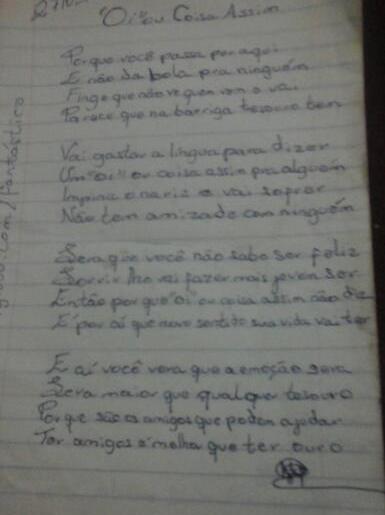 "Oi" ou Coisa Assim
Por que você passa por aqui
E não da bola pra ninguém
Finge que não ve quem vem o vai
Parece que na barriga tesouro tem
Vai gastar a língua para dizer
Um "oi" or coisa assim pra alguém
Impina o nariz e vai soprar
Não tem amizade com ninguém
Sera que você não sabe ser feliz
Sorrir lhe vai fazer mais jovem ser
Então por que "oi" ou coisa assim não diz
E por aí que novo sentido sua vida vai ter
E aí você vera que a emoção sera
Sera maior que qualquer tesouro
Por que são os amigos que podem ajudar
Ter amigos é melho que ter ouro
.com/fantástico